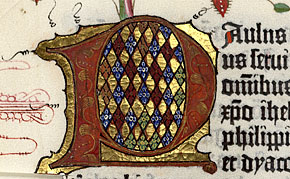 Paulus
us serui
omnibus
xpo ihe
philippi
et dyaco